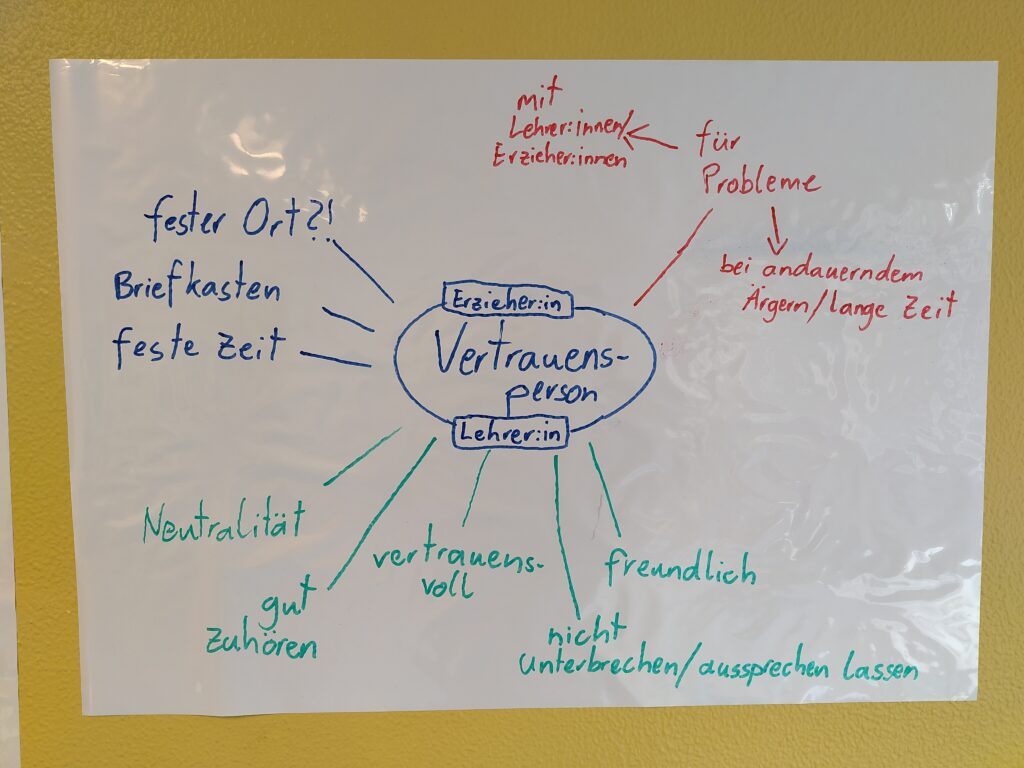 mit
Lehrer:innen/
Erzieher:innen
für
Probleme
bei andauerndem
Ärgern/lange Zeit
fester Ort?!
Briefkasten
feste Zeit
Erzieher:in
Vertrauens-
person
Lehrer:in
Neutralität
gut
zuhören
vertrauens-
voll
nicht
unterbrechen/aussprechen lassen
freundlich